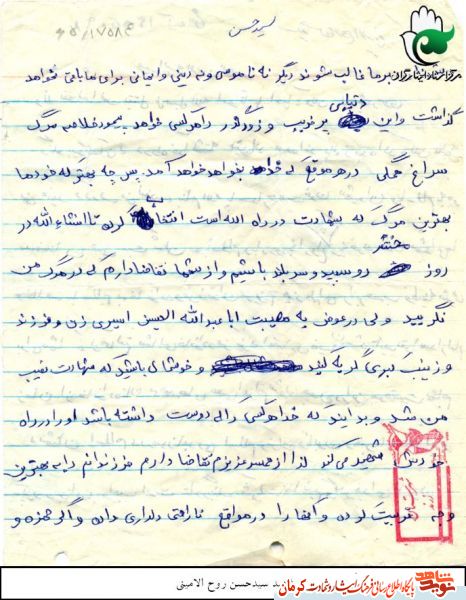 سید حسن
بر ما غالب شوند دیگر نه ناموسی و نه دینی و ایمانی برای ما باقی نخواهد
گذاشت و این دنیایی پر فریب و زودگذر را هر کسی خواهد پیمود خلاصه مرگ
سراغ همگی در هر موقع که بخواهد خواهد آمد پس چه بهتر که خود ما
بهترین مرگ که شهادت در راه الله است انتخاب کرده تا انشاء الله در
روز محشر رو سپید و سربلند باشیم و از شما تقاضا دارم که در مرگ من
نگریید ولی در عوض به مصیبت ابا عبدالله الحسین اسیری زن و فرزند
و زینب کبری گریه کنید و خوشحال باشید که شهادت نصیب
من شد و بدانید که خدا هر کسی را که دوست داشته باشد او را در راه
خودش شهید می کند لذا از همسر عزیزم تقاضا دارم فرزندانم را به بهترین
وجه تربیت کرده و آنها را در مواقع ناراحتی دلداری داده و اگر حمزه و
سیدحسن روح الامینی
نوید شاهد
پایگاه اطلاع رسانی فرهنگ ایثار و شهادت کرمان